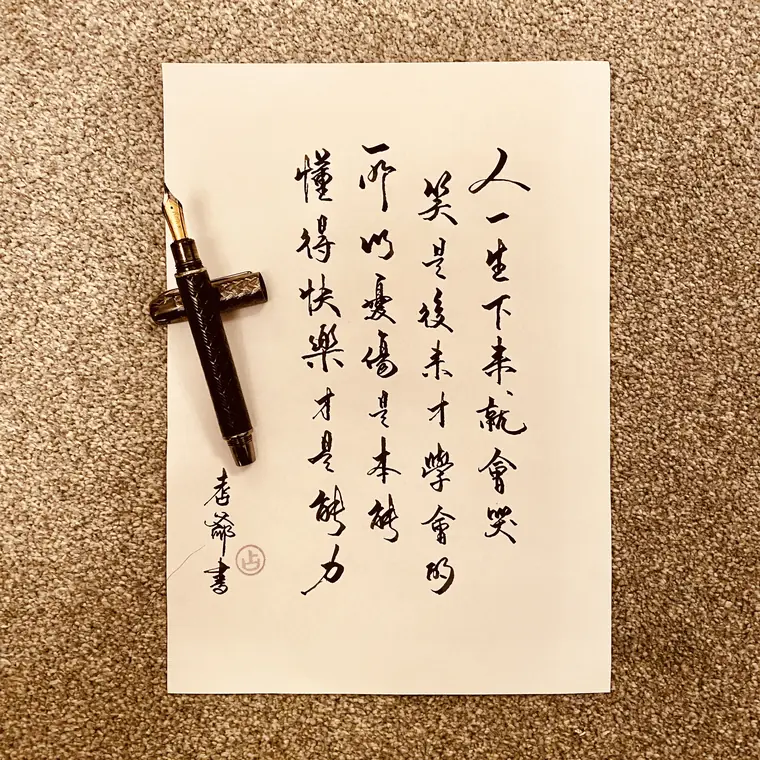 人一生下来就會哭
笑是後来才學會的
所以憂傷是本能
懂得快樂才是能力
老爺書
占